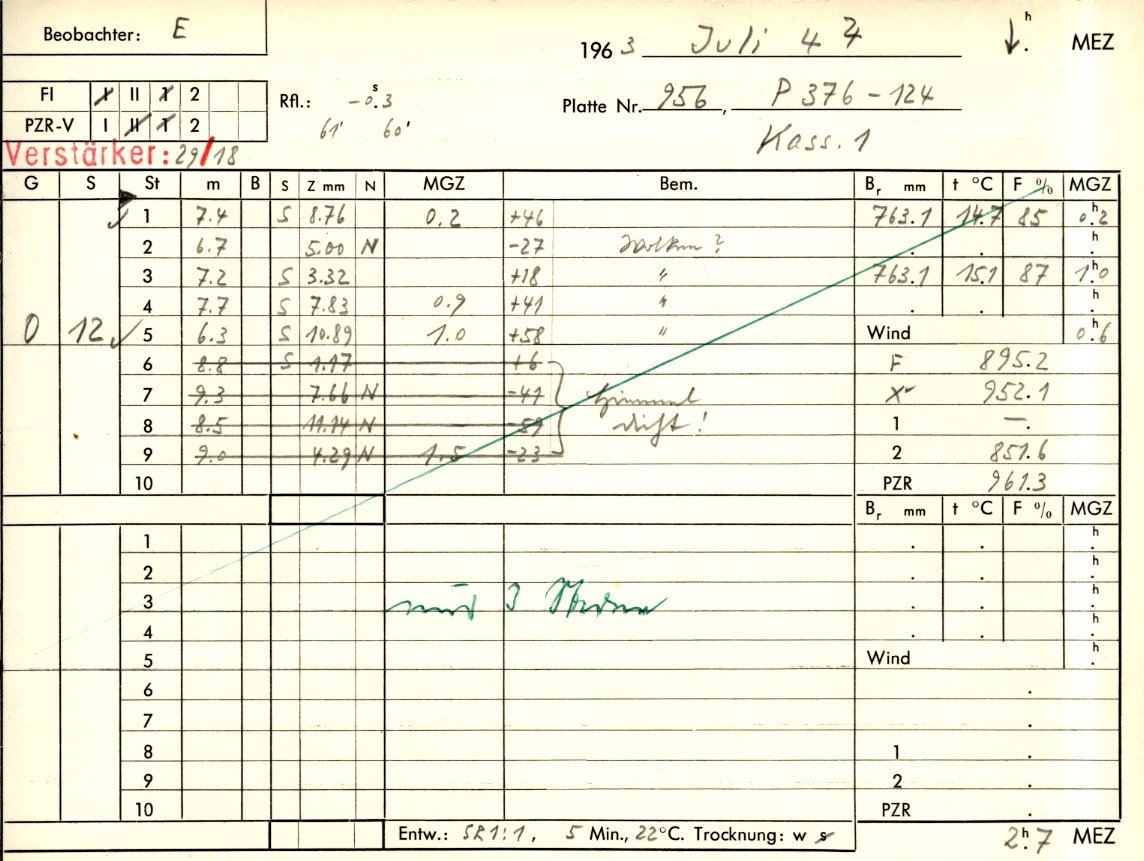 Beobachter: E
196 3 Juli 4 h MEZ
FI I II 1 2
Rfl.: -0.3 s
Platte Nr. 956, P 376 - 124
PZR-V I II 1 2
61' 60'
Kass. 1
Verstärker: 29/18
G S St m B S Z mm N MGZ Bem. Br mm t °C F % MGZ
1 7.4 S 8.76 0.2 +46 763.1 14.7 85 0.2 h
2 6.7 5.00 N -27 Wolken? h
3 7.2 S 3.32 +18 " 763.1 15.1 87 1.0 h
4 7.7 S 7.83 0.9 +41 " h
0 12 5 6.3 S 10.89 1.0 +58 " Wind 0.6 h
6 8.8 S 1.17 +6 F 895.2
7 9.3 7.66 N -41 Himmel 952.1
8 8.5 11.14 N -59 dicht! 1 —.
9 9.0 4.29 N 1.5 -23 2 851.6
10 PZR 961.3
Br mm t °C F % MGZ
1 h
2 h
3 nur 3 Sterne h
4 h
5 Wind h
6
7
8 1
9 2
10 PZR
Entw.: SR 1:1, 5 Min., 22°C. Trocknung: w s 2.7 h MEZ